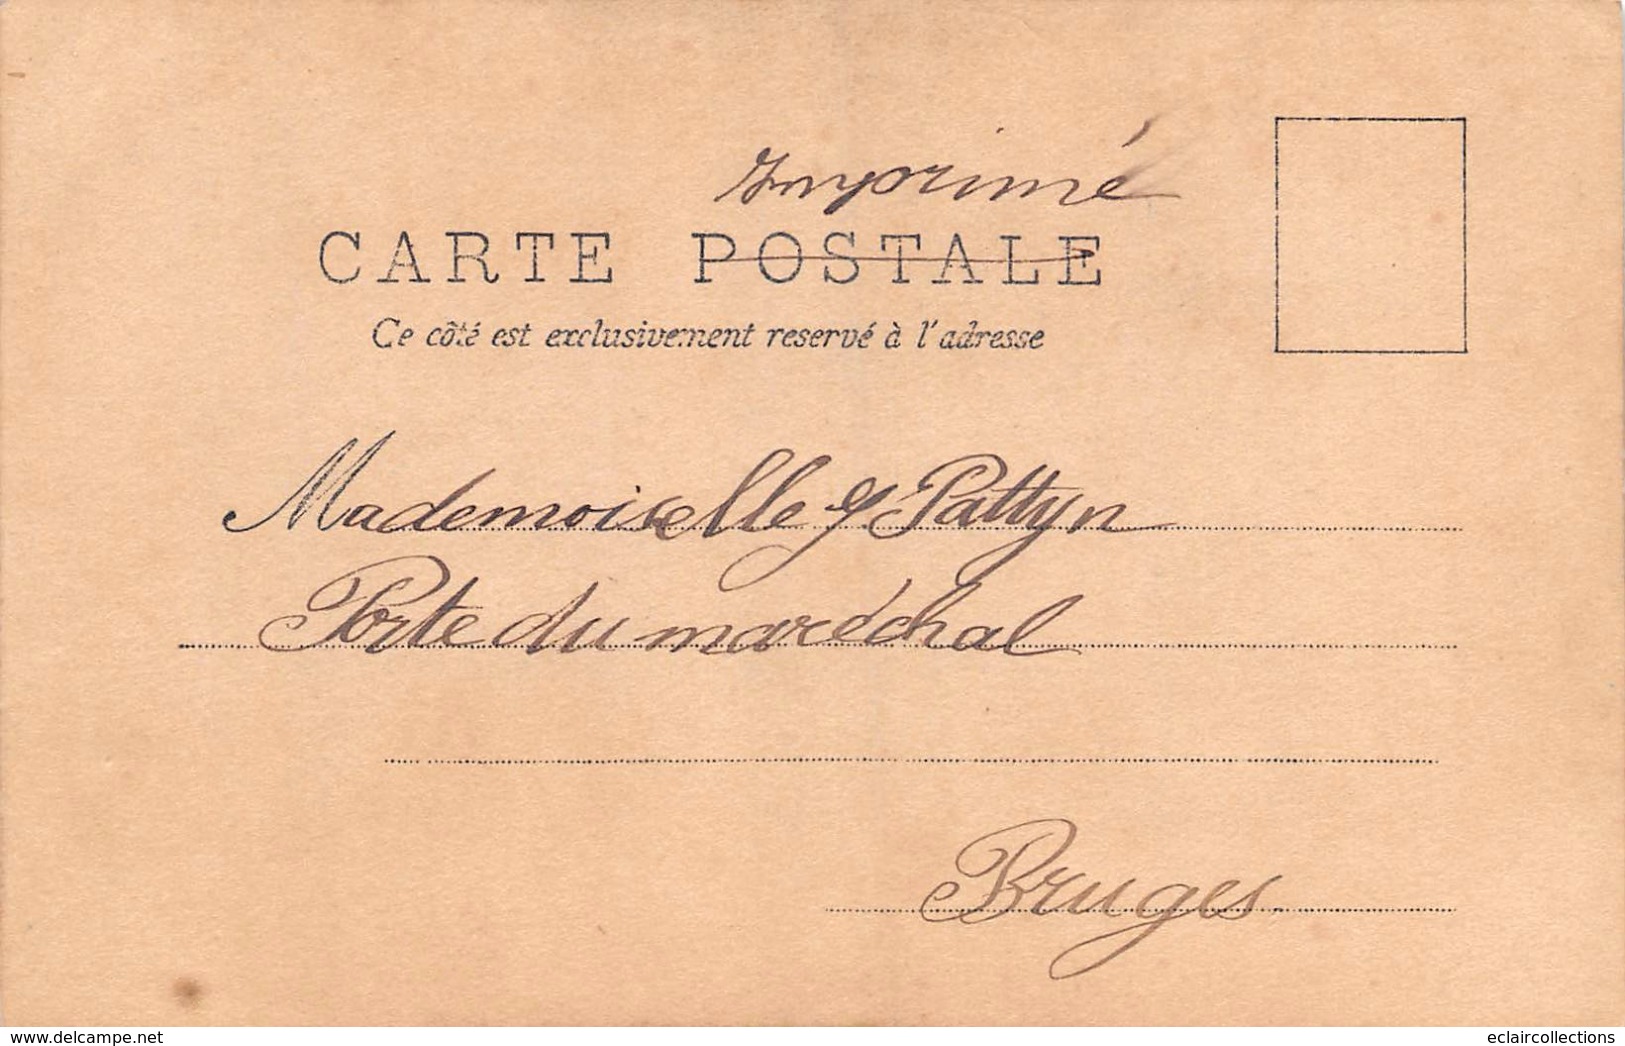 Imprimé
CARTE POSTALE
Ce côté est exclusivement reservé à l'adresse
Mademoiselle Pattyn
Porte du maréchal
Bruges.
www.delcampe.net
eclaircollections